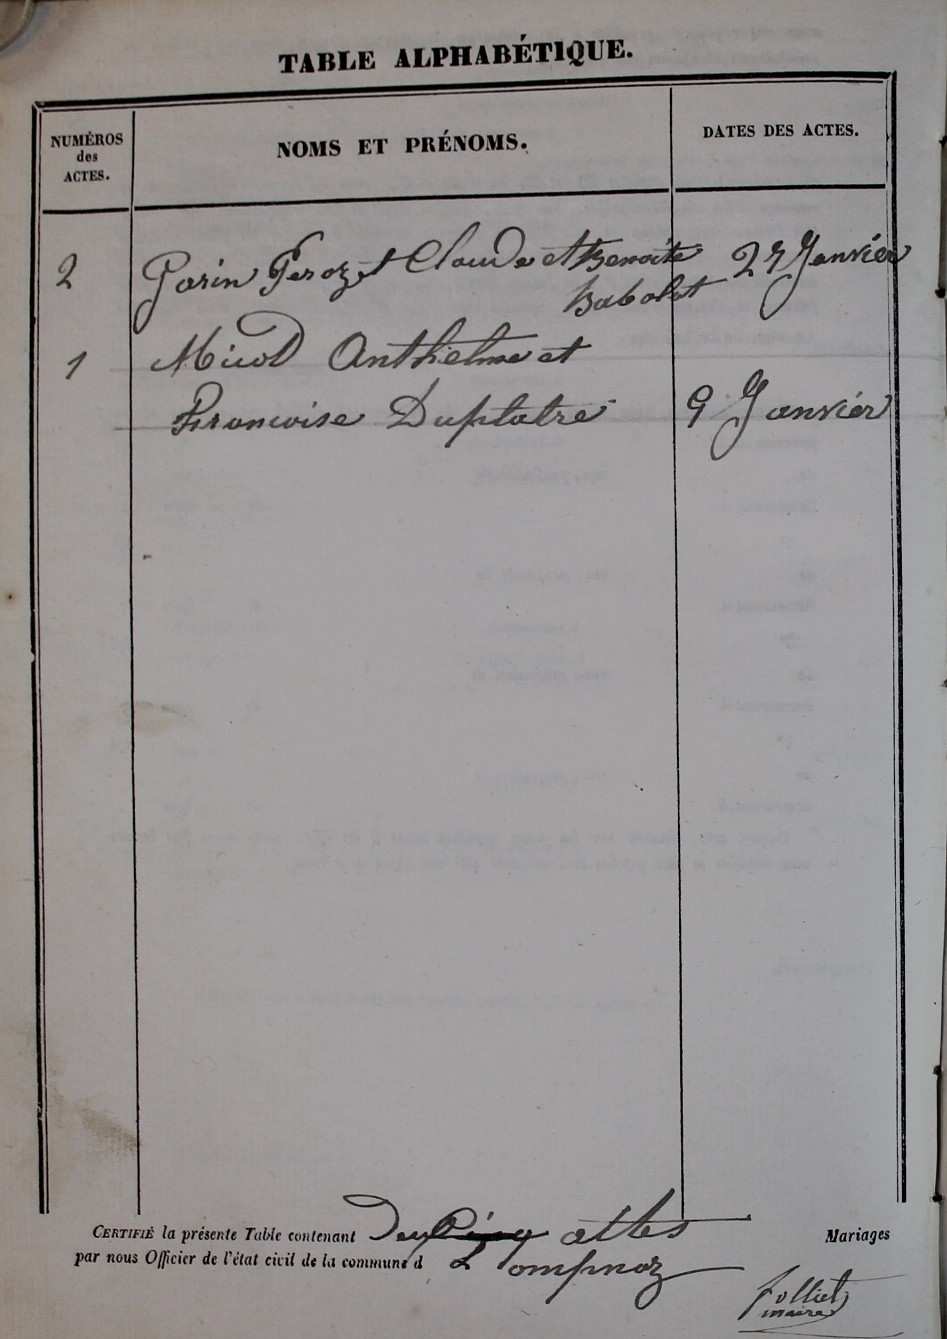 TABLE ALPHABÉTIQUE.
NUMÉROS
des
ACTES.
NOMS ET PRÉNOMS.
DATES DES ACTES.
2 Garin Peroz et Claude et Benoite 27 Janvier
Babolat
1 Micod Anthelme et
Francoise Duplatre 9 Janvier
CERTIFIÉ la présente Table contenant Deux actes Mariages
par nous Officier de l'état civil de la commune d Lompnaz
Tolliet
maire